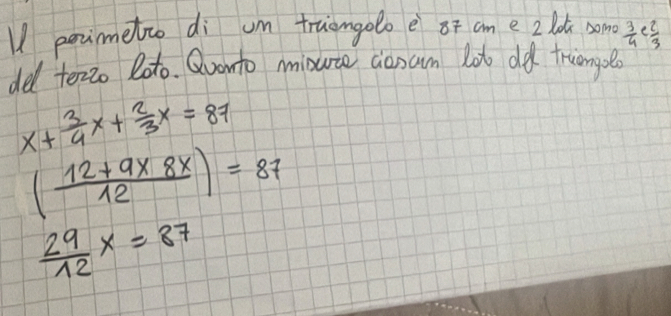 Il perimetro di un triangolo è 87 cm e 2 lati sono 3/4 e 2/3
del terzo lato. Quanto misura ciascun lato del triangolo
x + 3/4 x + 2/3 x = 87
(12 + 9x 8x / 12) = 87
29/12 x = 87